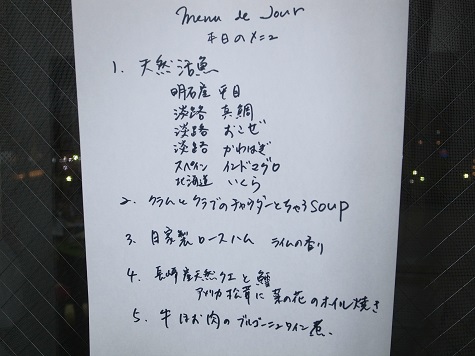 menu de Jour
本日のメニュー
1. 天然活魚
明石産 平目
淡路 真鯛
淡路 おこぜ
淡路 かわはぎ
スペイン インドマグロ
北海道 いくら
2. クラムとクラブのチャウダーとちゃうSOUP
3. 自家製ロースハム ライムの香り
4. 長崎産天然クエと鱈
アメリカ松茸に菜の花のオイル焼き
5. 牛ほお肉のブルゴーニュワイン煮